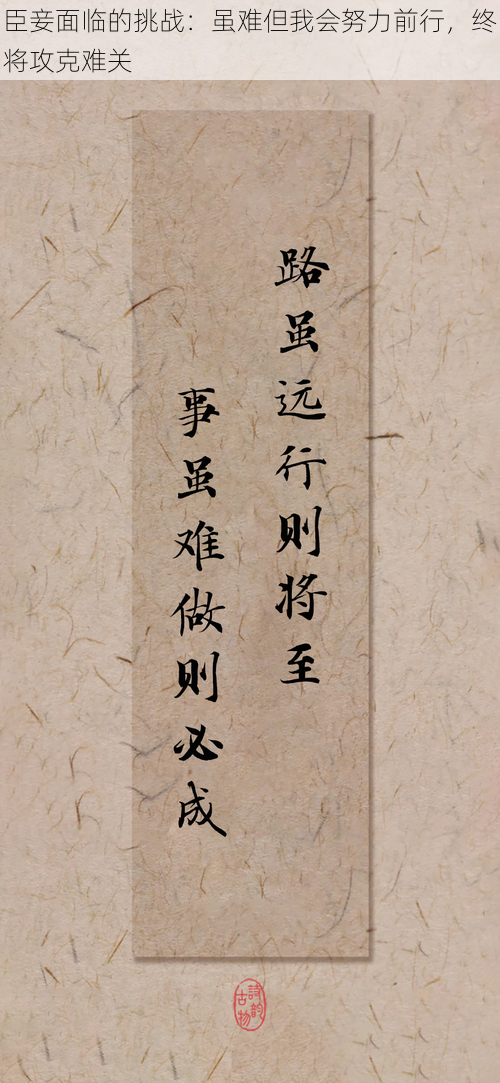 臣妾面临的挑战：虽难但我会努力前行，终
将攻克难关
路虽远行则将至
事虽难做则必成
詩韵
古物